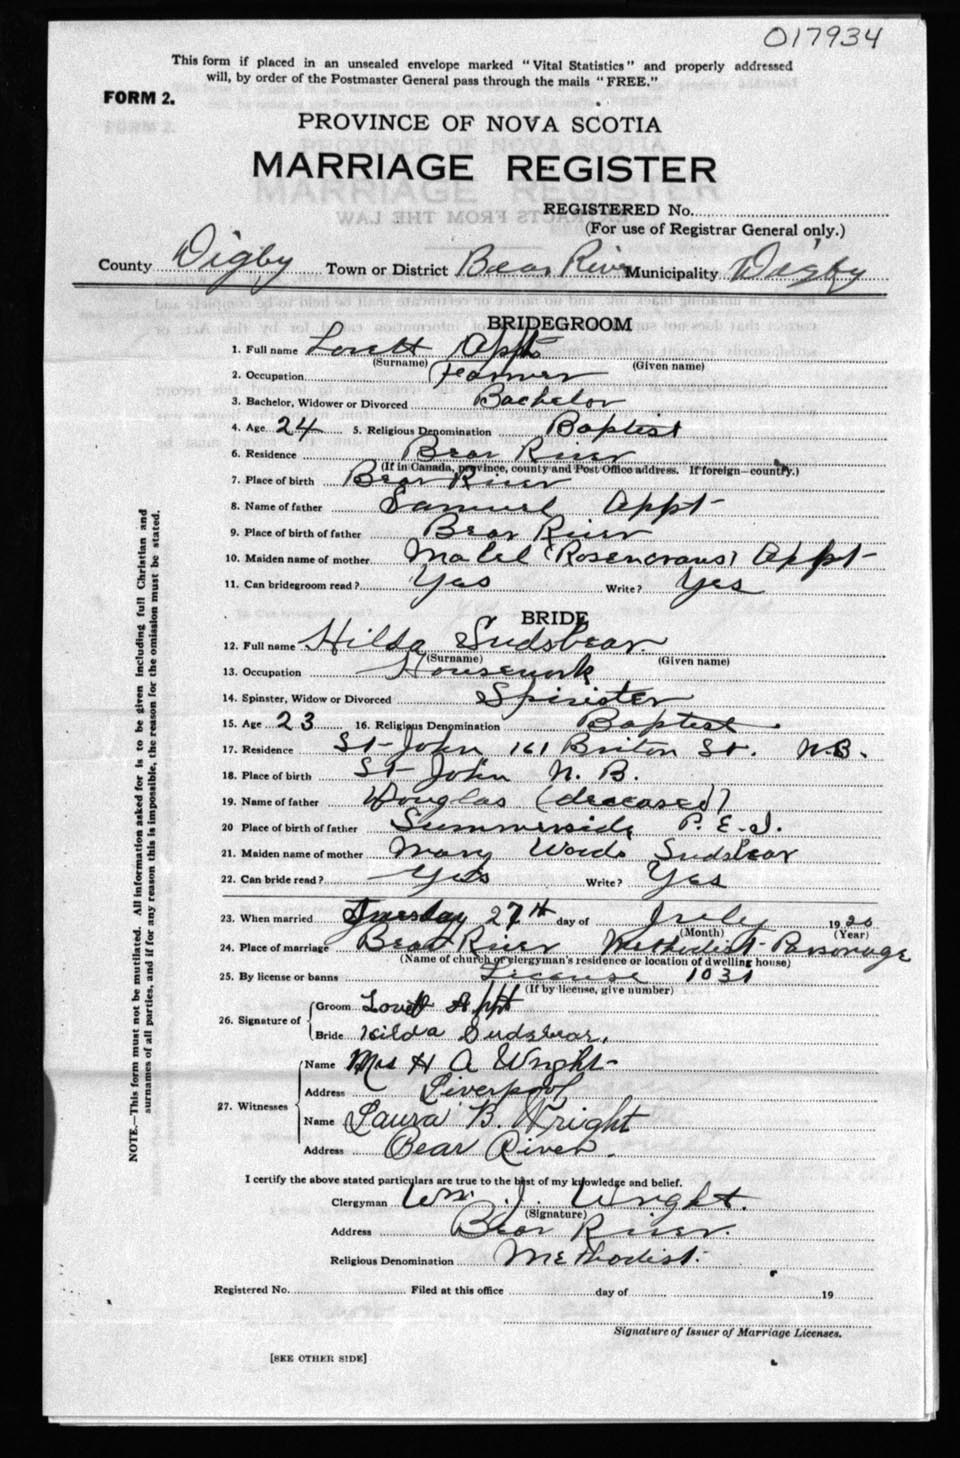 017934
This form if placed in an unsealed envelope marked "Vital Statistics" and properly addressed
will, by order of the Postmaster General pass through the mails "FREE."
FORM 2.
PROVINCE OF NOVA SCOTIA
MARRIAGE REGISTER
REGISTERED No.
(For use of Registrar General only.)
County Digby Town or District Bear River Municipality Digby
BRIDEGROOM
1. Full name Lovett Appt
(Surname) (Given name)
2. Occupation Farmer
3. Bachelor, Widower or Divorced Bachelor
4. Age 24 5. Religious Denomination Baptist
6. Residence Bear River
(If in Canada, province, county and Post Office address. If foreign—country.)
7. Place of birth Bear River
8. Name of father Samuel Appt
9. Place of birth of father Bear River
10. Maiden name of mother Mabel (Rosencrans) Appt
11. Can bridegroom read? Yes Write? Yes
BRIDE
12. Full name Hilda Sudsbear
(Surname) (Given name)
13. Occupation Housework
14. Spinster, Widow or Divorced Spinister
15. Age 23 16. Religious Denomination Baptist.
17. Residence St John 161 Briton St. N.B.
18. Place of birth St John N. B.
19. Name of father Douglas (deceased)
20 Place of birth of father Summerside P. E. I.
21. Maiden name of mother Mary Woods Sudsbear
22. Can bride read? Yes Write? Yes
23. When married Tuesday 27th day of July 1920
(Month) (Year)
24. Place of marriage Bear River Methodist Parsonage
(Name of church or clergyman's residence or location of dwelling house)
25. By license or banns License 1031
(If by license, give number)
26. Signature of Groom Lovett Appt
Bride Hilda Sudsbear.
27. Witnesses Name Mrs H A Wright
Address Liverpool
Name Laura B. Wright
Address Bear River.
I certify the above stated particulars are true to the best of my knowledge and belief.
Clergyman Wm. J. Wright.
(Signature)
Address Bear River.
Religious Denomination Methodist.
Registered No. Filed at this office day of 19
Signature of Issuer of Marriage Licenses.
[SEE OTHER SIDE]
NOTE.—This form must not be mutilated. All information asked for is to be given including full Christian and
surnames of all parties, and if for any reason this is impossible, the reason for the omission must be stated.